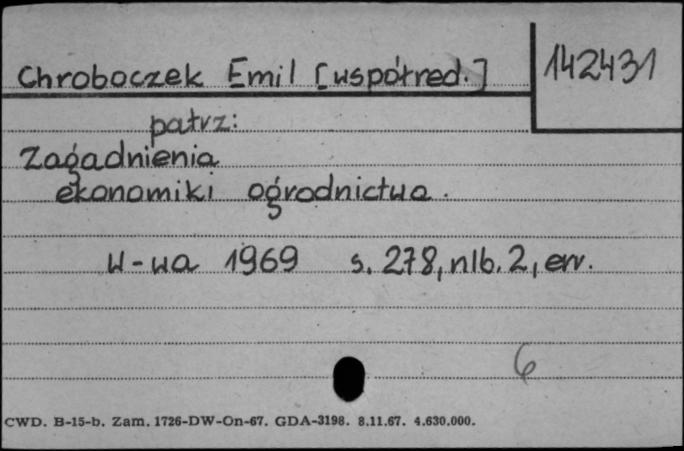 Chroboczek Emil [współred.]
142431
patrz:
Zagadnienia
ekonomiki ogrodnictwa.
W-wa 1969 s. 278, nlb. 2, err.
6
CWD. B-15-b. Zam. 1726-DW-On-67. GDA-3198. 8.11.67. 4.630.000.